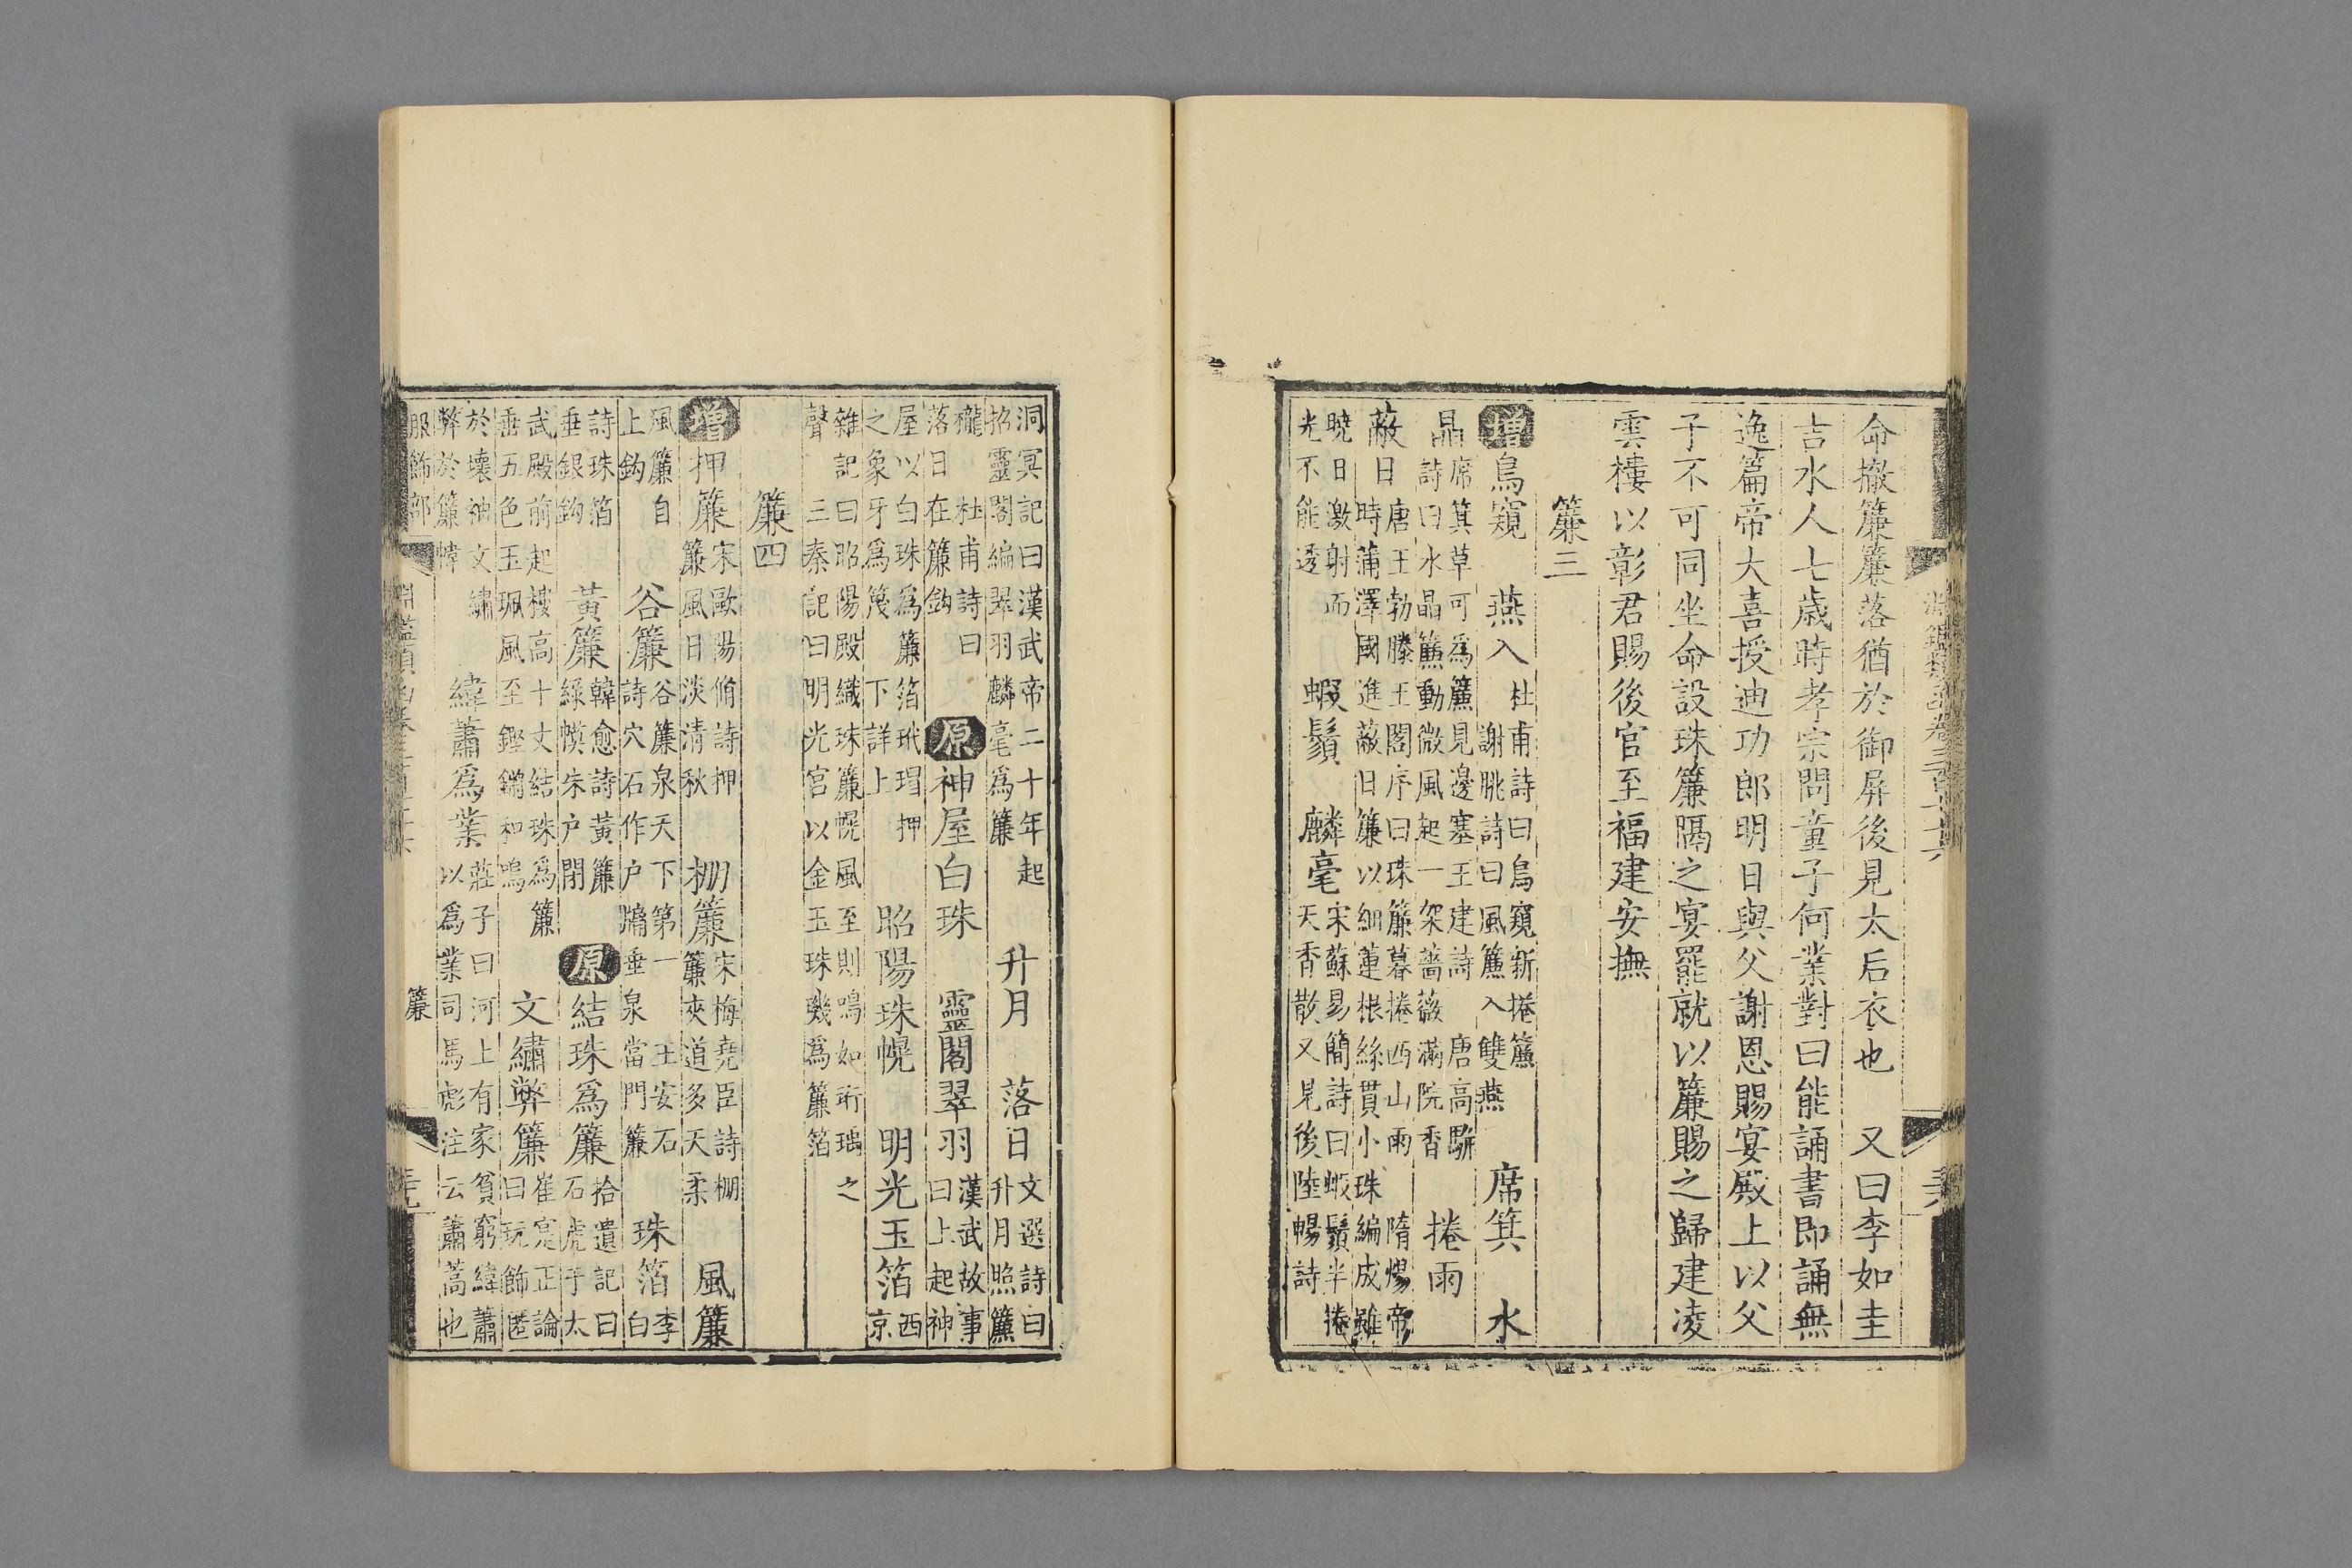 淵鑑類函卷三百七十六
命撤簾簾落猶於御屏後見太后衣也　又曰李如圭
吉水人七歲時孝宗問童子何業對曰能誦書即誦無
逸篇帝大喜授迪功郎明日與父謝恩賜宴殿上以父
子不可同坐命設珠簾隔之宴罷就以簾賜之歸建凌
雲樓以彰君賜後官至福建安撫
簾三
增烏窺　燕入　杜甫詩曰烏窺新捲簾　謝朓詩曰風簾入雙燕　席箕　水
晶　席箕草可爲簾見邊塞王建詩　唐高駢詩曰水晶簾動微風起一架薔薇滿院香　捲雨
蔽日　唐王勃滕王閣序曰珠簾暮捲西山雨　隋煬帝時蒲澤國進蔽日簾以細蓮根絲貫小珠編成雖
曉日激射而光不能透　蝦鬚　麟毫　宋蘇易簡詩曰蝦鬚半捲天香散又見後陸暢詩
洞冥記曰漢武帝二十年起招靈閣編翠羽麟毫爲簾　升月　落日　文選詩曰升月照簾
櫳　杜甫詩曰落日在簾鈎　原神屋白珠　靈閣翠羽　漢武故事曰上起神
屋以白珠爲簾箔玳瑁押之象牙爲篾　下詳上　昭陽珠幌　明光玉箔　西京
雜記曰昭陽殿織珠簾幌風至則鳴如珩珮之聲　三秦記曰明光宮以金玉珠璣爲簾箔
簾四
增押簾　宋歐陽脩詩押簾風日淡清秋　棚簾　宋梅堯臣詩棚簾夾道多天柔　風簾
風簾自上鈎　谷簾　谷簾泉天下第一　王安石詩穴石作户牖垂泉當門簾　珠箔　李白
詩珠箔垂銀鈎　黃簾　韓愈詩黃簾綠幙朱户閉　原結珠爲簾　拾遺記曰石虎于太
武殿前起樓高十丈結珠爲簾垂五色玉珮風至鏗鏘和鳴　文繡弊簾　崔寔正論曰玩飾匿
於壞袖文繡弊於簾幃　緯蕭爲業　莊子曰河上有家貧窮緯蕭以爲業司馬彪注云蕭蒿也
服飾部　簾